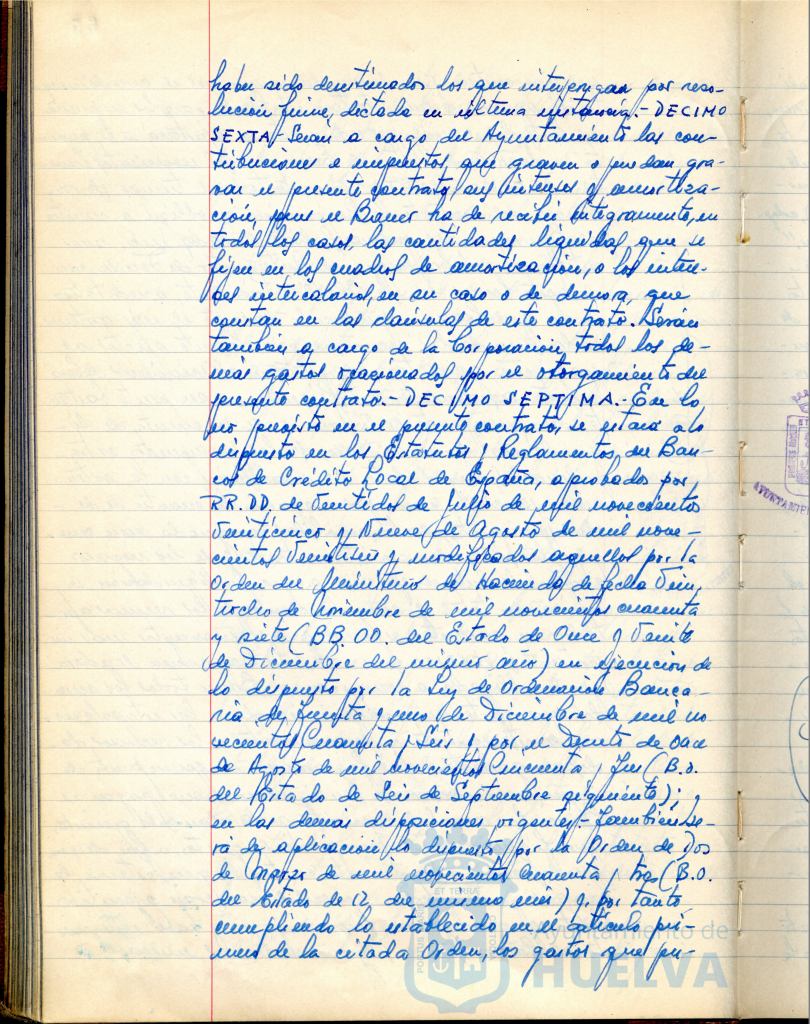 haber sido desestimados los que interpongan por reso-
lución firme, dictada en última instancia.- DECIMO
SEXTA.- Serán a cargo del Ayuntamiento las con-
tribuciones e impuestos, que graven o puedan gra-
var el presente contrato, sus intereses y amortiza-
ción, pues el Banco ha de recibir íntegramente, en
todos los casos, las cantidades líquidas, que se
fijen en los cuadros de amortización, o los intere-
ses intercalarios, en su caso o de demora, que
constan en las cláusulas de este contrato. Serán
también a cargo de la Corporación todos los de-
más gastos ocasionados por el otorgamiento del
presente contrato.- DECIMO SEPTIMA.- En lo
no previsto en el presente contrato, se estará a lo
dispuesto en los Estatutos y Reglamentos del Ban-
co de Crédito Local de España, aprobados por
RR.DD. de Veintidos de Julio de mil novecientos
Veinticinco y Nueve de Agosto de mil nove-
cientos Veintiseis y modificados aquellos por la
Orden del Ministerio de Hacienda de fecha Vein-
tiocho de Noviembre de mil novecientos cuarenta
y siete (BB.OO. del Estado de Once y Veinte
de Diciembre del mismo año) en ejecución de
lo dispuesto por la Ley de Ordenación Banca-
ria de Treinta y uno de Diciembre de mil no
vecientos Cuarenta y Seis y por el Decreto de Once
de Agosto de mil novecientos Cincuenta y Tres (B.O.
del Estado de Seis de Septiembre siguiente); y
en las demás disposiciones vigentes.- También se-
rá de aplicación lo dispuesto por la Orden de Dos
de Marzo de mil novecientos Cuarenta y tres (B.O.
del Estado de 12 del mismo mes) y por tanto
cumpliendo lo establecido en el artículo pri-
mero de la citada Orden, los gastos que pu-
Ayuntamiento de
HUELVA